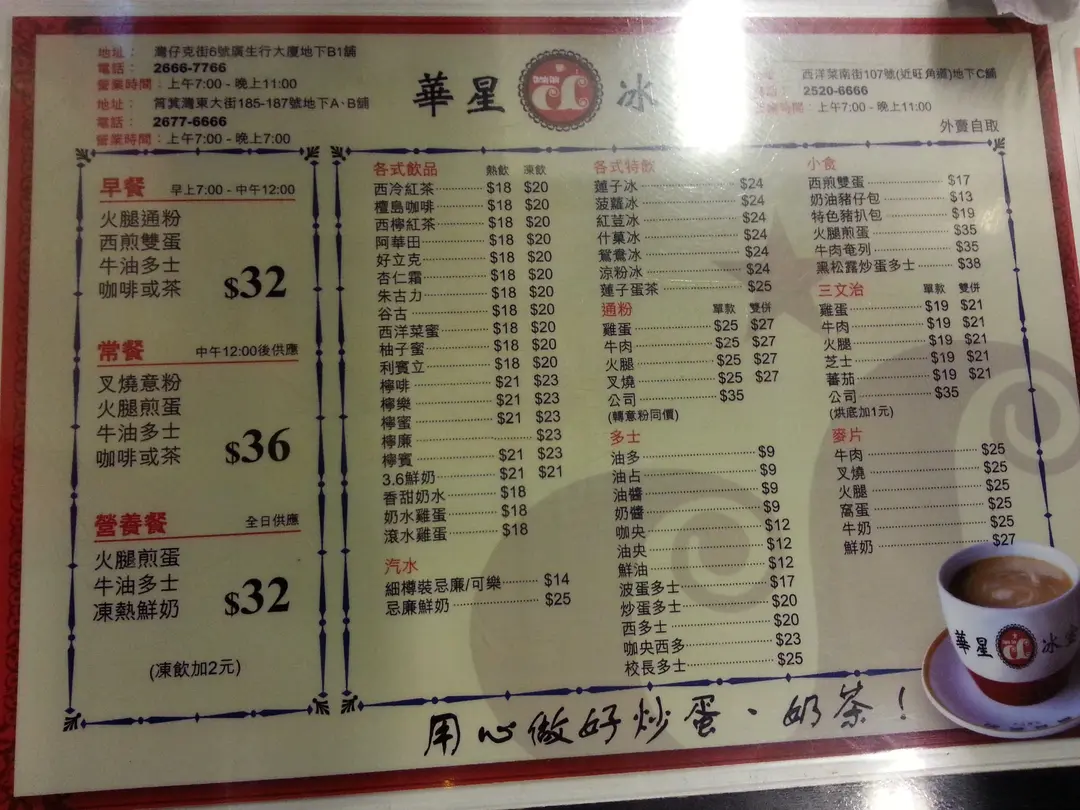 地址： 灣仔克街6號廣生行大廈地下B1舖
電話： 2666-7766
營業時間：上午7:00 - 晚上11:00
地址： 筲箕灣東大街185-187號地下A、B舖
電話： 2677-6666
營業時間：上午7:00 - 晚上7:00
華星 冰
西洋菜南街107號(近旺角道)地下C舖
2520-6666
上午7:00 - 晚上11:00
外賣自取
早餐 早上7:00 - 中午12:00
火腿通粉
西煎雙蛋
牛油多士
咖啡或茶 $32
常餐 中午12:00後供應
叉燒意粉
火腿煎蛋
牛油多士
咖啡或茶 $36
營養餐 全日供應
火腿煎蛋
牛油多士
凍熱鮮奶 $32
(凍飲加2元)
各式飲品 熱飲 凍飲
西冷紅茶 $18 $20
檀島咖啡 $18 $20
西檸紅茶 $18 $20
阿華田 $18 $20
好立克 $18 $20
杏仁霜 $18 $20
朱古力 $18 $20
谷古 $18 $20
西洋菜蜜 $18 $20
柚子蜜 $18 $20
利賓立 $18 $20
檸啡 $21 $23
檸樂 $21 $23
檸蜜 $21 $23
檸廉 $23
檸賓 $21 $23
3.6鮮奶 $21 $21
香甜奶水 $18
奶水雞蛋 $18
滾水雞蛋 $18
汽水
細樽裝忌廉/可樂 $14
忌廉鮮奶 $25
各式特飲
蓮子冰 $24
菠蘿冰 $24
紅荳冰 $24
什菓冰 $24
鴛鴦冰 $24
涼粉冰 $24
蓮子蛋茶 $25
通粉 單款 雙併
雞蛋 $25 $27
牛肉 $25 $27
火腿 $25 $27
叉燒 $25 $27
公司 $35
(轉意粉同價)
多士
油多 $9
油占 $9
油醬 $9
奶醬 $9
咖央 $12
油央 $12
鮮油 $12
波蛋多士 $17
炒蛋多士 $20
西多士 $20
咖央西多 $23
校長多士 $25
小食
西煎雙蛋 $17
奶油豬仔包 $13
特色豬扒包 $19
火腿煎蛋 $35
牛肉奄列 $35
黑松露炒蛋多士 $38
三文治 單款 雙併
雞蛋 $19 $21
牛肉 $19 $21
火腿 $19 $21
芝士 $19 $21
蕃茄 $19 $21
公司 $35
(烘底加1元)
麥片
牛肉 $25
叉燒 $25
火腿 $25
窩蛋 $25
牛奶 $25
鮮奶 $27
華星 冰
用心做好炒蛋、奶茶！